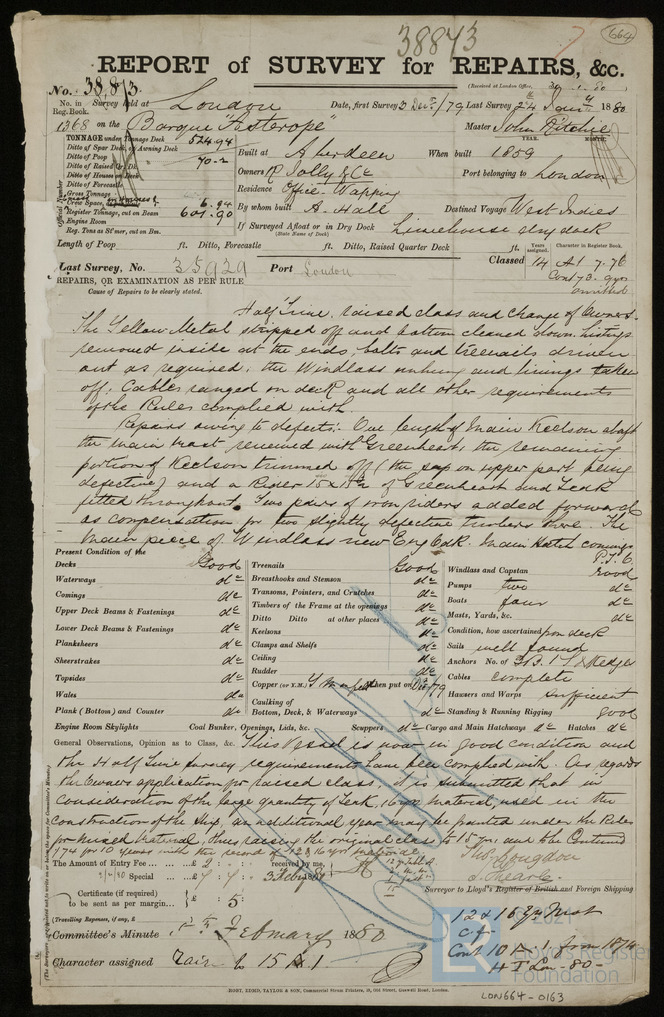 38873
664
REPORT of SURVEY for REPAIRS, &c.
(Received at London Office,
No. 38873
No. in Reg. Book.
Survey held at London
Date, first Survey 2 Decr/79 Last Survey 24 Jany 1880
1368 on the Barque "Asterope"
Master John Ritchie
TONNAGE under Tonnage Deck 524.94
Ditto of Spar Deck, or Awning Deck
Ditto of Poop
Ditto of Raised Qr. Dk.
Ditto of Houses on Deck
Ditto of Forecastle
Gross Tonnage
Crew Space, 6.94
Register Tonnage, cut on Beam 601.90
Engine Room
Reg. Tons as St'mer, cut on Bm.
Official Number
Built at Aberdeen When built 1859
MONTH.
Owners R Jolly & Co Port belonging to London
Residence Office Wapping
By whom built A. Hall Destined Voyage West Indies
If Surveyed Afloat or in Dry Dock Limehouse dry dock
(State Name of Dock)
Length of Poop ft. Ditto, Forecastle ft. Ditto, Raised Quarter Deck ft.
Years assigned. Character in Register Book.
Classed 14 A1 7.76
Cont 73. 9yrs
omitted
Last Survey, No. 35929 Port London
REPAIRS, OR EXAMINATION AS PER RULE
Cause of Repairs to be clearly stated.
Half Time, raised class and change of Owners.
The Yellow Metal stripped off and bottom cleaned down. Listings
removed inside at the ends, bolts and treenails driven
out as required, the Windlass unhung and linings taken
off, Cables ranged on deck and all other requirements
of the Rules complied with.
Repairs owing to defects:- One length of Main Keelson abaft
the main mast renewed with Greenheart, the remaining
portion of Keelson trimmed off (the sap on upper part being
defective) and a Rider 15 x of Greenheart and Teak
fitted throughout. Two pairs of iron riders added forward
as compensation for two slightly defective timbers there. The
Main piece of Windlass new Eng Oak. Main Hatch comings
P.T.O
Present Condition of the
Decks Good
Waterways do
Comings do
Upper Deck Beams & Fastenings do
Lower Deck Beams & Fastenings do
Planksheers do
Sheerstrakes do
Topsides do
Wales do
Plank (Bottom) and Counter do
Treenails Good
Breasthooks and Stemson do
Transoms, Pointers, and Crutches do
Timbers of the Frame at the openings do
Ditto Ditto at other places do
Keelsons do
Clamps and Shelfs do
Ceiling do
Rudder do
Copper (or Y.M.) Y M on felt When put on Decr/79
Caulking of
Bottom, Deck, & Waterways do
Windlass and Capstan Good
Pumps two do
Boats four do
Masts, Yards, &c. do
Condition, how ascertained from deck
Sails well found
Anchors No. of 3B. 1 S. & Kedge
Cables complete
Hawsers and Warps sufficient
Standing & Running Rigging good
Engine Room Skylights Coal Bunker, Openings, Lids, &c. Scuppers do Cargo and Main Hatchways do Hatches do
General Observations, Opinion as to Class, &c. This Vessel is now in good condition and
the Half Time survey requirements have been complied with. As regards
the Owners application for raised class, it is submitted that in
consideration of the large quantity of Teak, 16 yrs material, used in the
construction of the ship, an additional year may be granted under the Rules
for mixed material, thus raising the original class to 15 yrs, and to be Continued
/74 for 10 years with the record of 12 & 16 yrs material
The Amount of Entry Fee ... £ 2 : : received by me,
Special ... £ : : 3 Febry 80
Certificate (if required) £ : 5 :
to be sent as per margin...
(Travelling Expenses, if any, £
Thos Congdon
Surveyor to Lloyd's Register of British and Foreign Shipping
Committee's Minute February 1880
Character assigned 15 A 1
12 & 16 Yr Mat
c.f.
Cont 10 A.1 from 1874
H T Lon - 80 -
© 2021
Lloyd's Register
Foundation
ROBT, EDMD, TAYLOR & SON, Commercial Steam Printers, 19, Old Street, Goswell Road, London.
LON664-0163